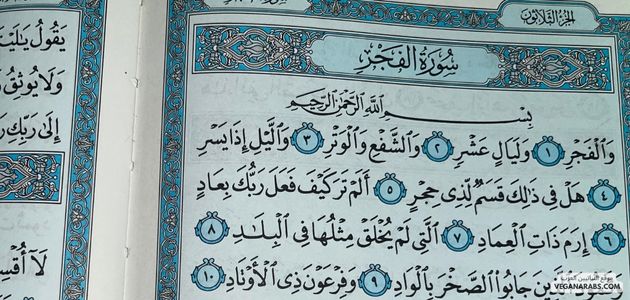 الجزء الثلاثون
سُورَةُ الفَجْرِ
بِسْمِ اللَّهِ الرَّحْمَٰنِ الرَّحِيمِ
وَالْفَجْرِ ١ وَلَيَالٍ عَشْرٍ ٢ وَالشَّفْعِ وَالْوَتْرِ ٣ وَاللَّيْلِ إِذَا يَسْرِ
٤ هَلْ فِي ذَٰلِكَ قَسَمٌ لِّذِي حِجْرٍ ٥ أَلَمْ تَرَ كَيْفَ فَعَلَ رَبُّكَ بِعَادٍ
٦ إِرَمَ ذَاتِ الْعِمَادِ ٧ الَّتِي لَمْ يُخْلَقْ مِثْلُهَا فِي الْبِلَٰدِ ٨
الَّذِينَ جَابُوا الصَّخْرَ بِالْوَادِ ٩ وَفِرْعَوْنَ ذِي الْأَوْتَادِ ١٠
يَقُولُ يَٰلَيْتَ
وَلَا يُوثِقُ
إِلَىٰ رَبِّكِ
لَا أُقْسِ
موقع النباتيين العرب
VEGANARABS.COM